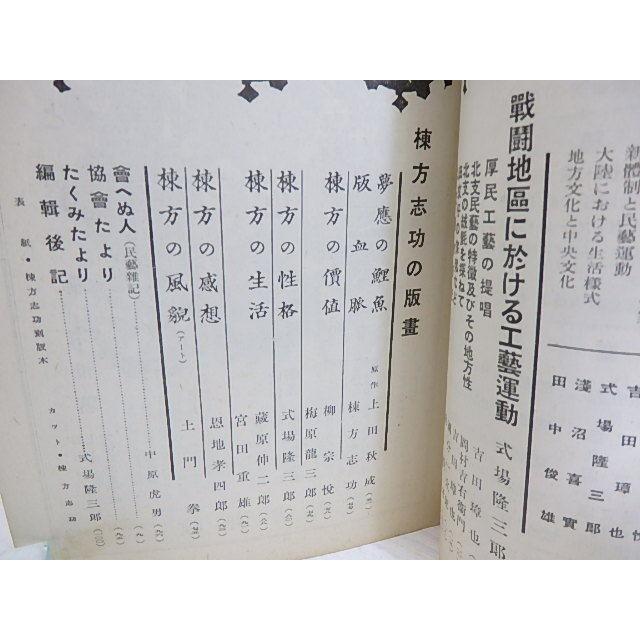 新體制と民藝運動
大陸における生活樣式
地方文化と中央文化
吉田璋也
式場隆三郎
淺沼喜實
田中俊雄
戰鬪地區に於ける工藝運動 式場隆三郎
厚民工藝の提唱 吉田璋也
北支民藝の特徵及びその地方性
棟方志功の版畫
夢應の鯉魚 原作 上田秋成
版血脈 棟方志功
棟方の價値 柳宗悅
梅原龍三郎
棟方の性格 式場隆三郎
藏原伸二郎
棟方の生活 宮田重雄
棟方の感想 恩地孝四郎
棟方の風貌(アート) 土門拳
會へぬ人(民藝雜記) 中原虎男
協會たより
たくみたより
編輯後記 式場隆三郎
表紙・棟方志功刻版木 カット・棟方志功